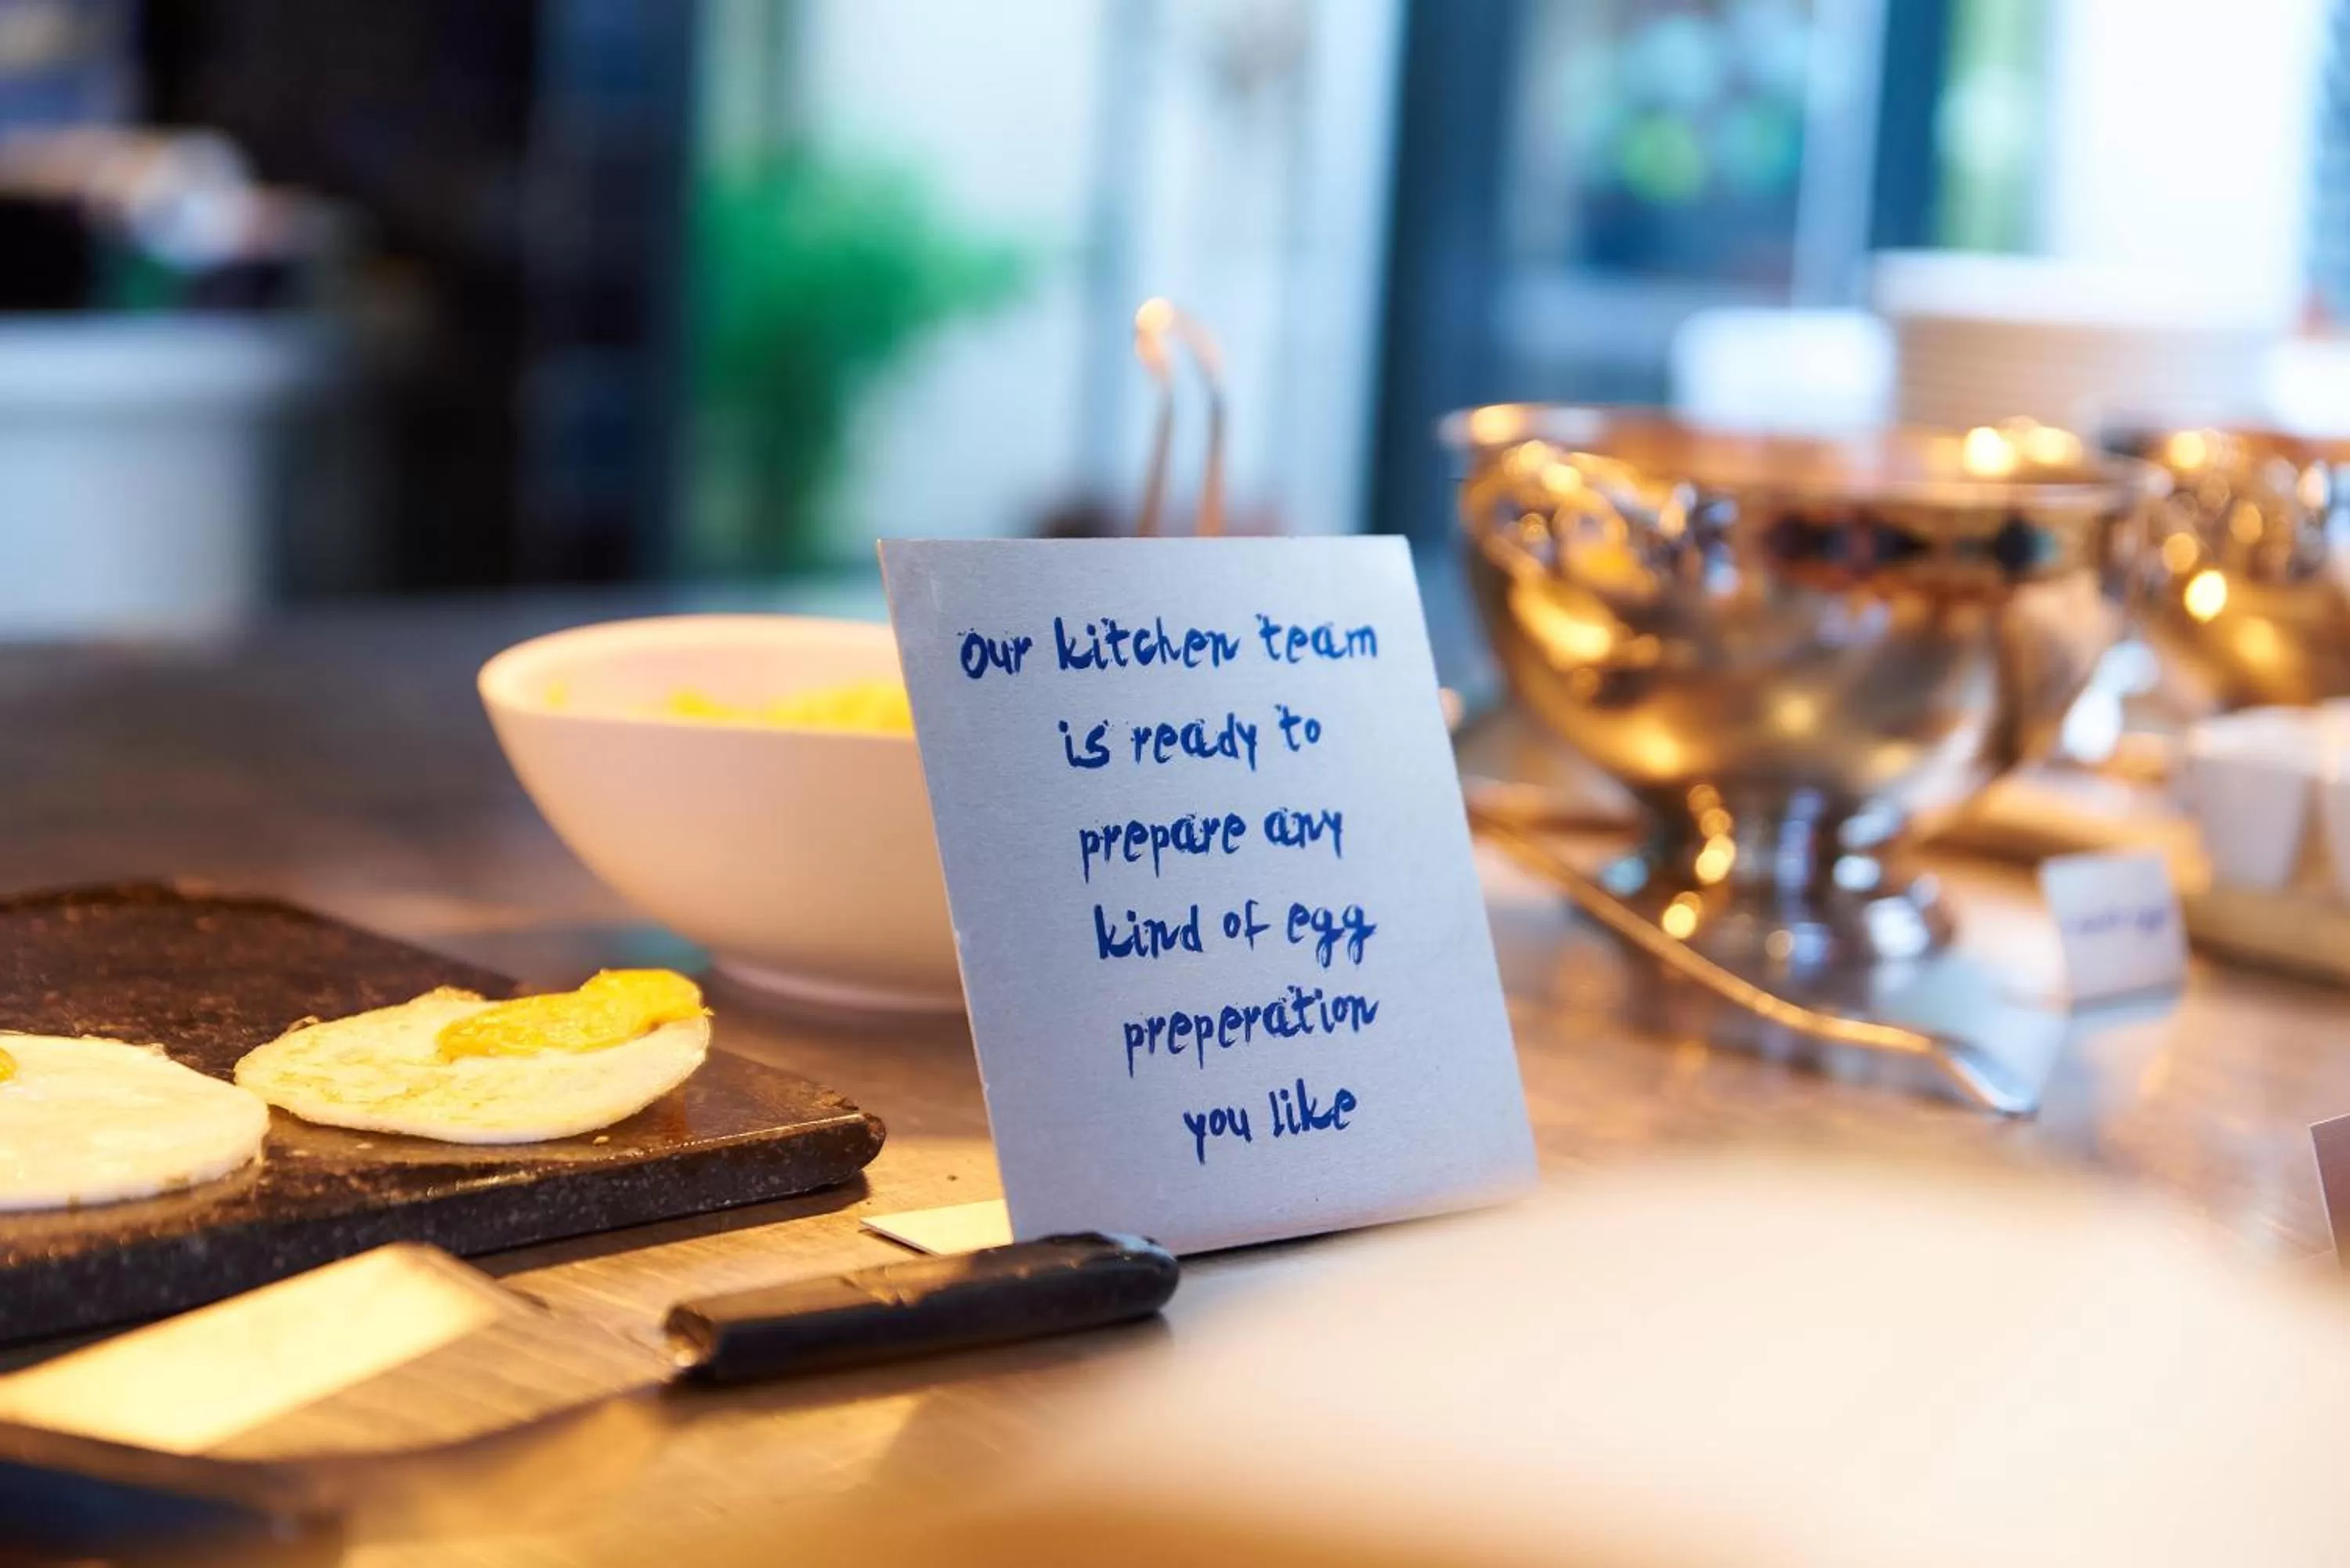 our kitchen team
is ready to
prepare any
kind of egg
preperation
you like